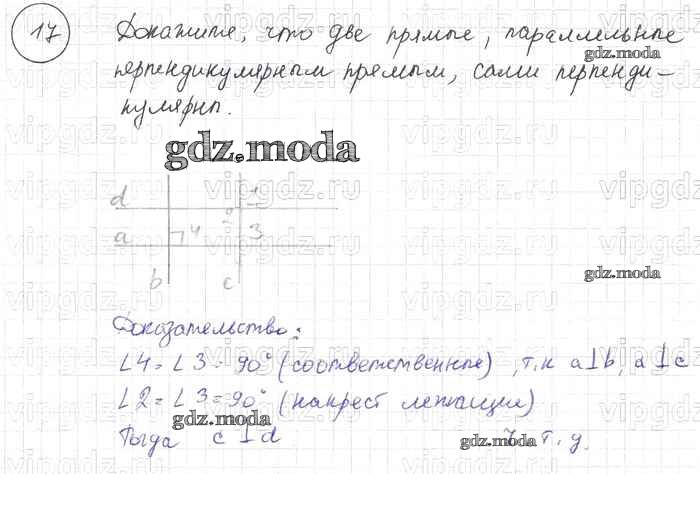 17 Докажите, что две прямые, параллельные
перпендикулярным прямым, сами перпенди-
кулярны.
gdz.moda
gdz.moda
d 1
2
a 4 3
b c
gdz.moda
Доказательство:
∠4 = ∠3 = 90° (соответственные), т.к a⊥b, a⊥c
∠2 = ∠3 = 90° (накрест лежащие)
gdz.moda
Тогда c⊥d т.д.
gdz.moda
vipgdz.ru